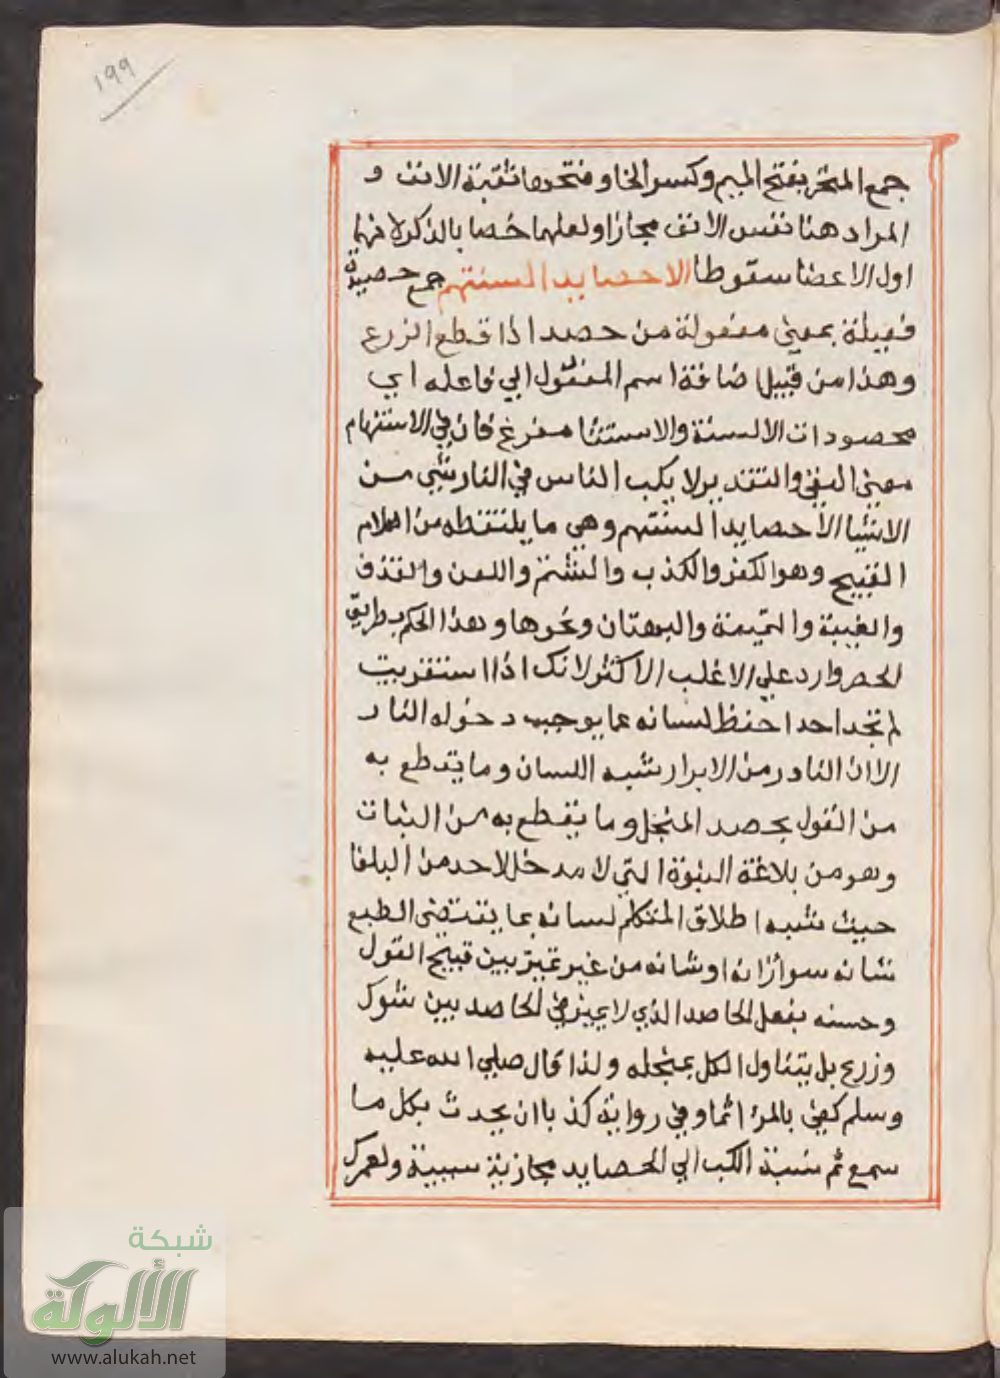 ١٩٩
جمع المنخر بفتح الميم وكسر الخا وفتحها ثقبة الانف و
المراد هنا نفس الانف مجازا ولعلهما خصا بالذكر لانهما
اول الاعضا سقوطا الا حصايد السنتهم جمع حصيدة
فعيلة بمعني مفعولة من حصد اذا قطع الزرع
وهذا من قبيل اضافة اسم المفعول الي فاعله اي
محصودات الالسنة والاستثنا مفرغ فان في الاستفهام
معني النفي والتقدير لا يكب الناس في النار شي من
الاشيا الا حصايد السنتهم وهي ما يلتقطه من الكلام
القبيح وهو الكفر والكذب والشتم واللعن والقذف
والغيبة والنميمة والبهتان ونحوها وهذا الحكم بطريق
الحصر وارد علي الاغلب الاكثر لانك اذا استقريت
لم تجد احدا حفظ لسانه عما يوجب دخوله النار
الا ان النادر من الابرار شبه اللسان وما يقطع به
من القول بحصد المنجل وما يقطع به من النبات
وهو من بلاغة النبوة التي لا مدخل لاحد من البلغا
حيث شبه اطلاق المتكلم لسانه بما يقتضي الطبع
شانه سوا زانه او شانه من غير تمييز بين قبيح القول
وحسنه بفعل الحاصد الذي لا يميز في الحاصد بين شوك
وزرع بل يتناول الكل بمنجله ولذا قال صلي الله عليه
وسلم كفي بالمرء اثما وفي رواية كذبا ان يحدث بكل ما
سمع ثم نسبة الكب الي الحصايد مجازية سببية ولعمرك
شبكة
الألوكة
www.alukah.net